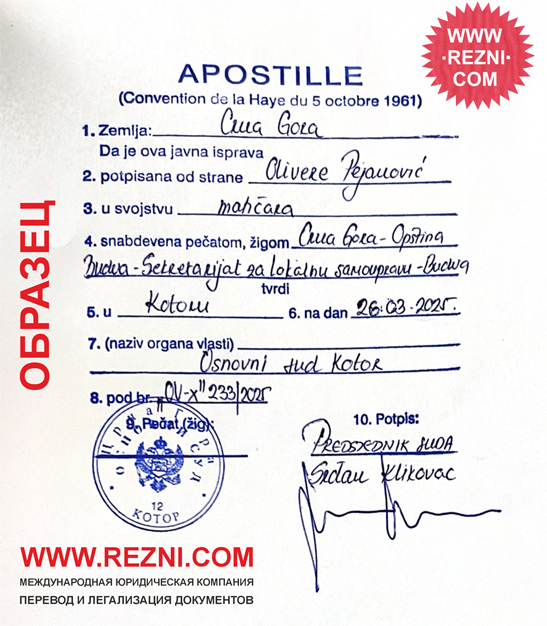 WWW
·REZNI·
COM
APOSTILLE
(Convention de la Haye du 5 octobre 1961)
1. Zemlja: Crna Gora
Da je ova javna isprava
2. potpisana od strane Olivere Pejanović
3. u svojstvu matičara
4. snabdevena pečatom, žigom Crna Gora - Opština
Budva - Sekretarijat za lokalnu samoupravu - Budva
tvrdi
5. u Kotoru 6. na dan 26.03.2025.
7. (naziv organa vlasti)
Osnovni sud Kotor
8. pod br. OV-X" 233/2025
9. Pečat (žig): 10. Potpis:
PREDSJEDNIK SUDA
Srđan Klikovac
Црна Гора
Основни суд
12
КОТОР
ОБРАЗЕЦ
WWW.REZNI.COM
МЕЖДУНАРОДНАЯ ЮРИДИЧЕСКАЯ КОМПАНИЯ
ПЕРЕВОД И ЛЕГАЛИЗАЦИЯ ДОКУМЕНТОВ